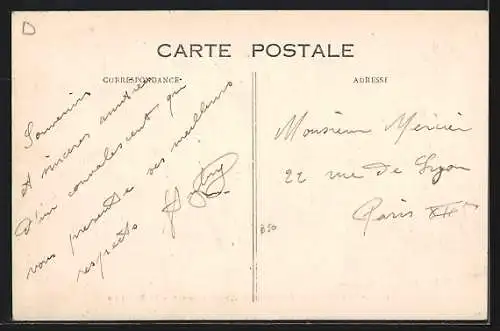 D
CARTE POSTALE
CORRESPONDANCE
ADRESSE
Souvenirs
et sincères amitiés
d'un convalescent qui
vous présente ses meilleurs
respects
Monsieur Mercier
22 rue de Lyon
Paris XIIe
B50